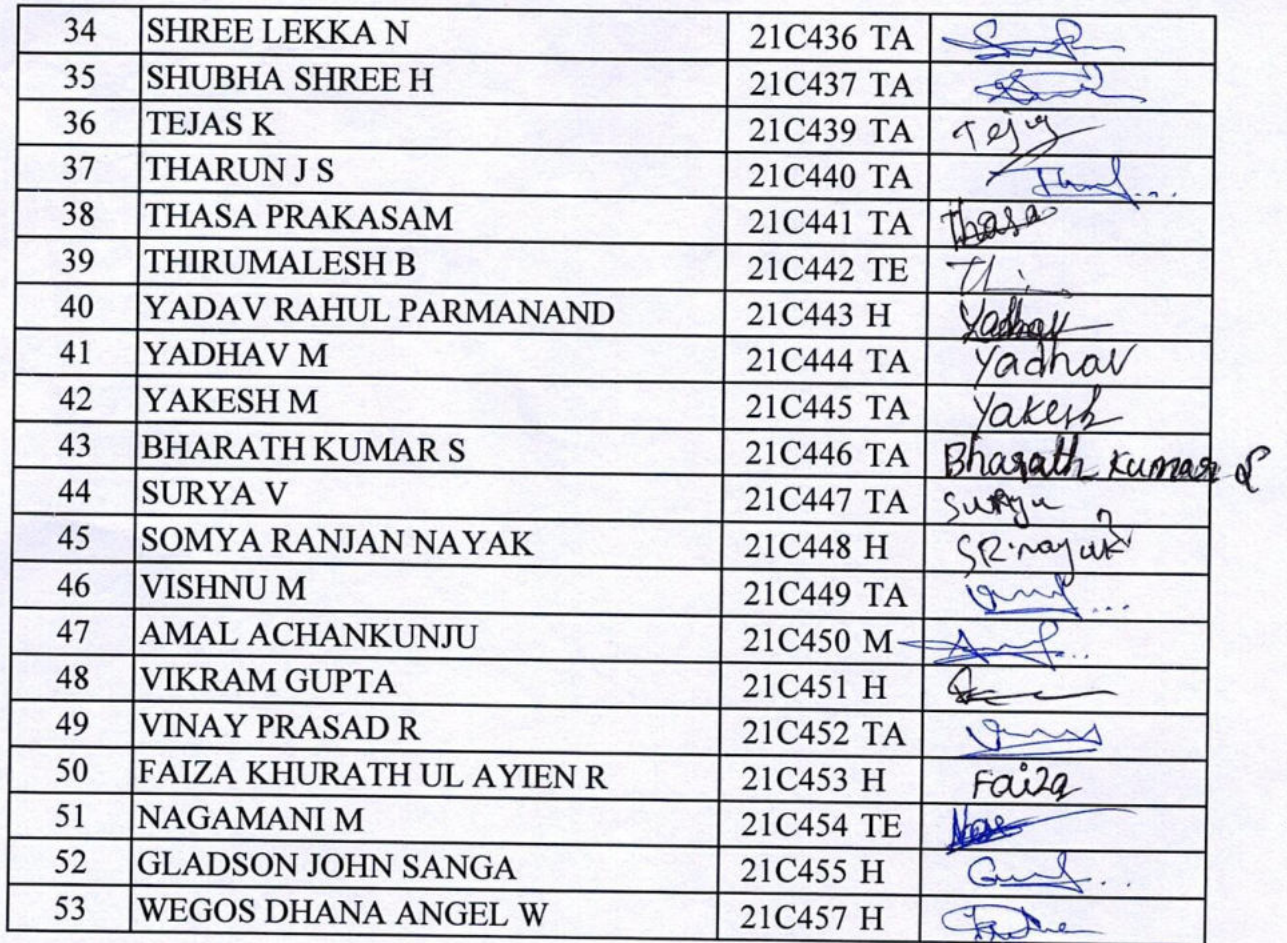 34 SHREE LEKKA N 21C436 TA
35 SHUBHA SHREE H 21C437 TA
36 TEJAS K 21C439 TA Tejas
37 THARUN J S 21C440 TA
38 THASA PRAKASAM 21C441 TA Thasa
39 THIRUMALESH B 21C442 TE
40 YADAV RAHUL PARMANAND 21C443 H
41 YADHAV M 21C444 TA Yadhav
42 YAKESH M 21C445 TA Yakesh
43 BHARATH KUMAR S 21C446 TA Bharath Kumar S
44 SURYA V 21C447 TA Surya
45 SOMYA RANJAN NAYAK 21C448 H SR.nayak
46 VISHNU M 21C449 TA
47 AMAL ACHANKUNJU 21C450 M
48 VIKRAM GUPTA 21C451 H
49 VINAY PRASAD R 21C452 TA
50 FAIZA KHURATH UL AYIEN R 21C453 H Faiza
51 NAGAMANI M 21C454 TE
52 GLADSON JOHN SANGA 21C455 H
53 WEGOS DHANA ANGEL W 21C457 H